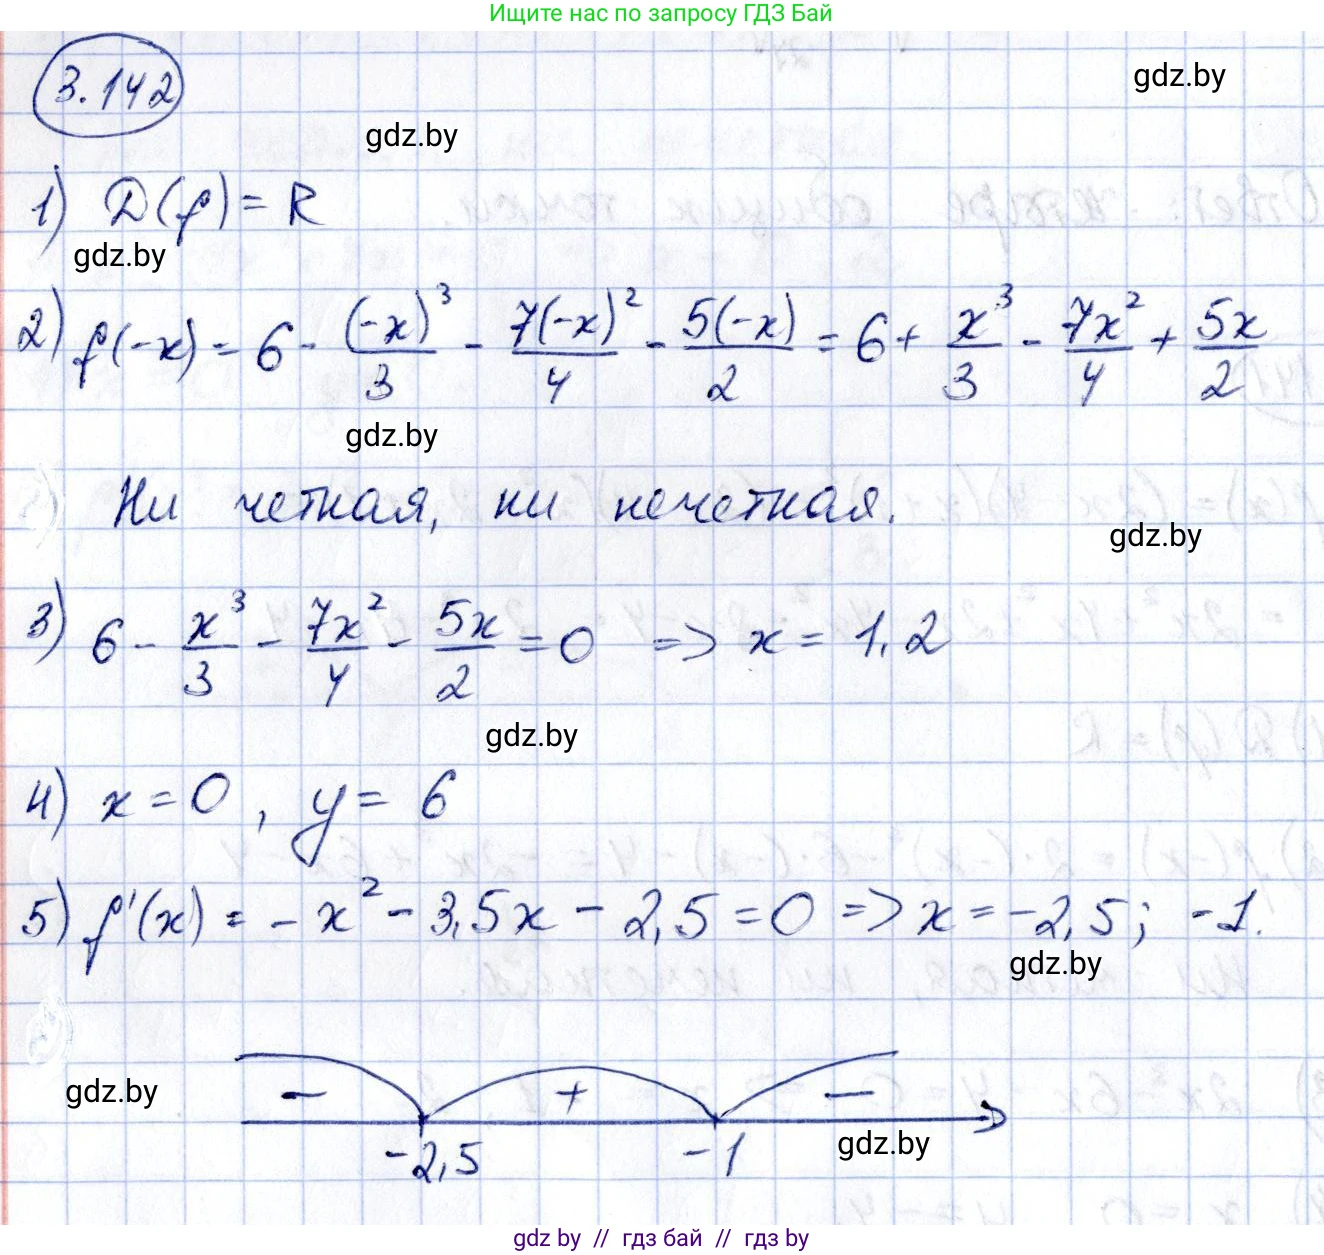 Ищите нас по запросу ГДЗ Бай
3.142
gdz.by
gdz.by
1) D(f) = R
gdz.by
2) f(-x) = 6 - (-x)³/3 - 7(-x)²/4 - 5(-x)/2 = 6 + x³/3 - 7x²/4 + 5x/2
gdz.by
Ни четная, ни нечетная.
gdz.by
3) 6 - x³/3 - 7x²/4 - 5x/2 = 0 => x = 1,2
gdz.by
4) x = 0, y = 6
5) f'(x) = - x² - 3,5x - 2,5 = 0 => x = -2,5; -1.
gdz.by
- + -
gdz.by
-2,5 -1
gdz.by
gdz by // гдз бай // гдз by